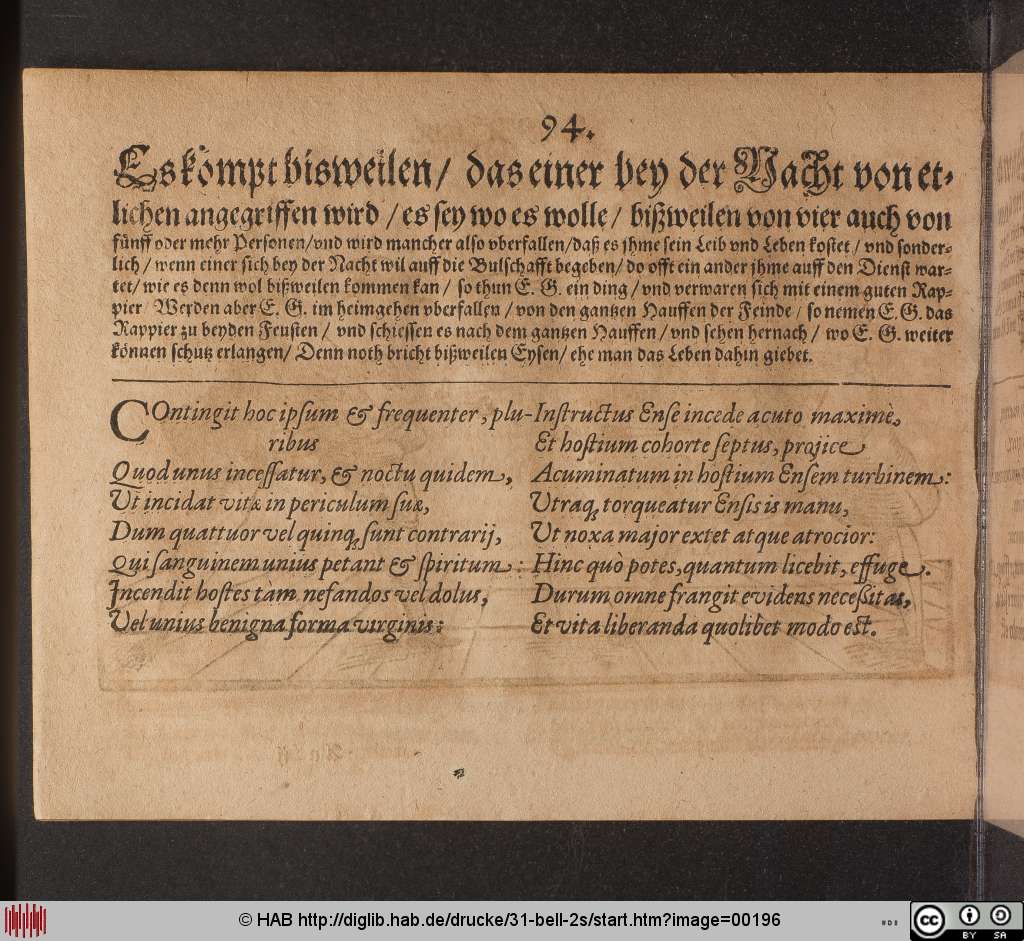 94.
Es kompt bisweilen/ das einer bey der Nacht von et-
lichen angegriffen wird / es sey wo es wolle/ bißweilen von vier auch von
fünff oder mehr Personen/vnd wird mancher also vberfallen/daß es jhme sein Leib vnd Leben kostet/ vnd sonder-
lich/ wenn einer sich bey der Nacht wil auff die Bulschafft begeben/ do offt ein ander jhme auff den Dienst war-
tet/ wie es denn wol bißweilen kommen kan/ so thun E. G. ein ding/ vnd verwaren sich mit einem guten Rap-
pier/ Werden aber E. G. im heimgehen vberfallen/ von den gantzen Hauffen der Feinde/ so nemen E. G. das
Rappier zu beyden Feusten/ vnd schiessen es nach dem gantzen Hauffen/ vnd sehen hernach/ wo E. G. weiter
können schutz erlangen/ Denn noth bricht bißweilen Eysen/ ehe man das Leben dahin giebet.
COntingit hoc ipsum & frequenter, plu-
ribus
Quod unus incessatur, & noctu quidem,
Ut incidat vitæ in periculum suæ,
Dum quattuor vel quinq; sunt contrarij,
Qui sanguinem unius petant & spiritum:
Incendit hostes tàm nefandos vel dolus,
Vel unius benigna forma virginis:
Instructus Ense incede acuto maximè,
Et hostium cohorte septus, projice
Acuminatum in hostium Ensem turbinem:
Utraq; torqueatur Ensis is manu,
Ut noxa major extet atque atrocior:
Hinc quò potes, quantum licebit, effuge.
Durum omne frangit evidens necessitas,
Et vita liberanda quolibet modo est.
© HAB http://diglib.hab.de/drucke/31-bell-2s/start.htm?image=00196
cc BY SA